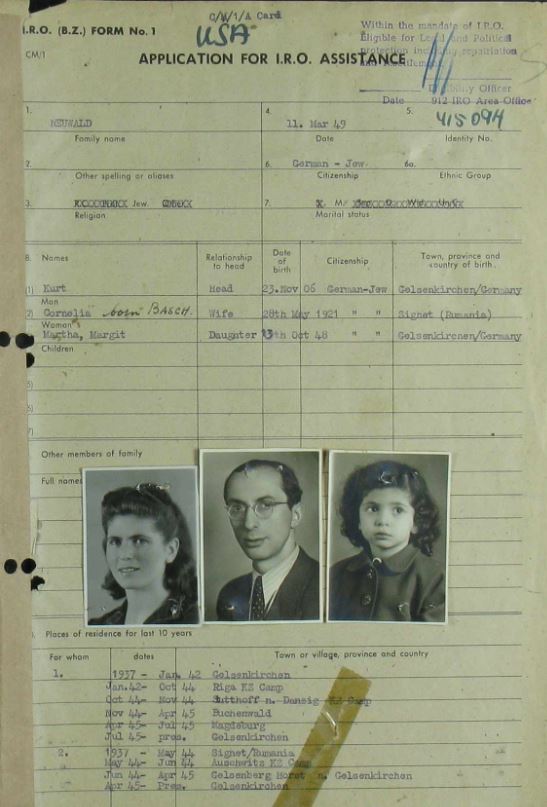 C/M/1/A Card
I.R.O. (B.Z.) FORM No. 1
USA
Within the mandate of I.R.O.
Eligible for Legal and Political
protection including repatriation
and
CM/1
APPLICATION FOR I.R.O. ASSISTANCE
Eligibility Officer
Date 912 IRO Area Office
1. 4. 5.
NEUWALD 11. Mar 49 415094
Family name Date Identity No.
2. 6. German - Jew. 6a.
Other spelling or aliases Citizenship Ethnic Group
3. Jew. 7. M.
Religion Marital status
8. Names Relationship to head Date of birth Citizenship Town, province and country of birth.
(1) Kurt Head 23.Nov 06 German-Jew Gelsenkirchen/Germany
Man
(2) Cornelia born BASCH. Wife 28th May 1921 " " Signet (Rumania)
Woman
Martha, Margit Daugster 13th Oct 48 " " Gelsenkirchen/Germany
Children
5)
6)
7)
Other members of family
Full names
Places of residence for last 10 years
For whom dates Town or village, province and country
1. 1937 - Jan. 42 Gelsenkirchen
Jan.42- Oct 44 Riga KZ Camp
Oct 44- Nov 44 Sutthoff n. Danzig KZ Camp
Nov 44- Apr 45 Buchenwald
Apr 45- Jul 45 Magdeburg
Jul 45- pres. Gelsenkirchen
2. 1937 - May 44 Signet/Rumania
May 44 - Jun 44 Auschwitz KZ Camp
Jun 44 - Apr 45 Gelsenberg Horst n. Gelsenkirchen
Apr 45 - Pres. Gelsenkirchen